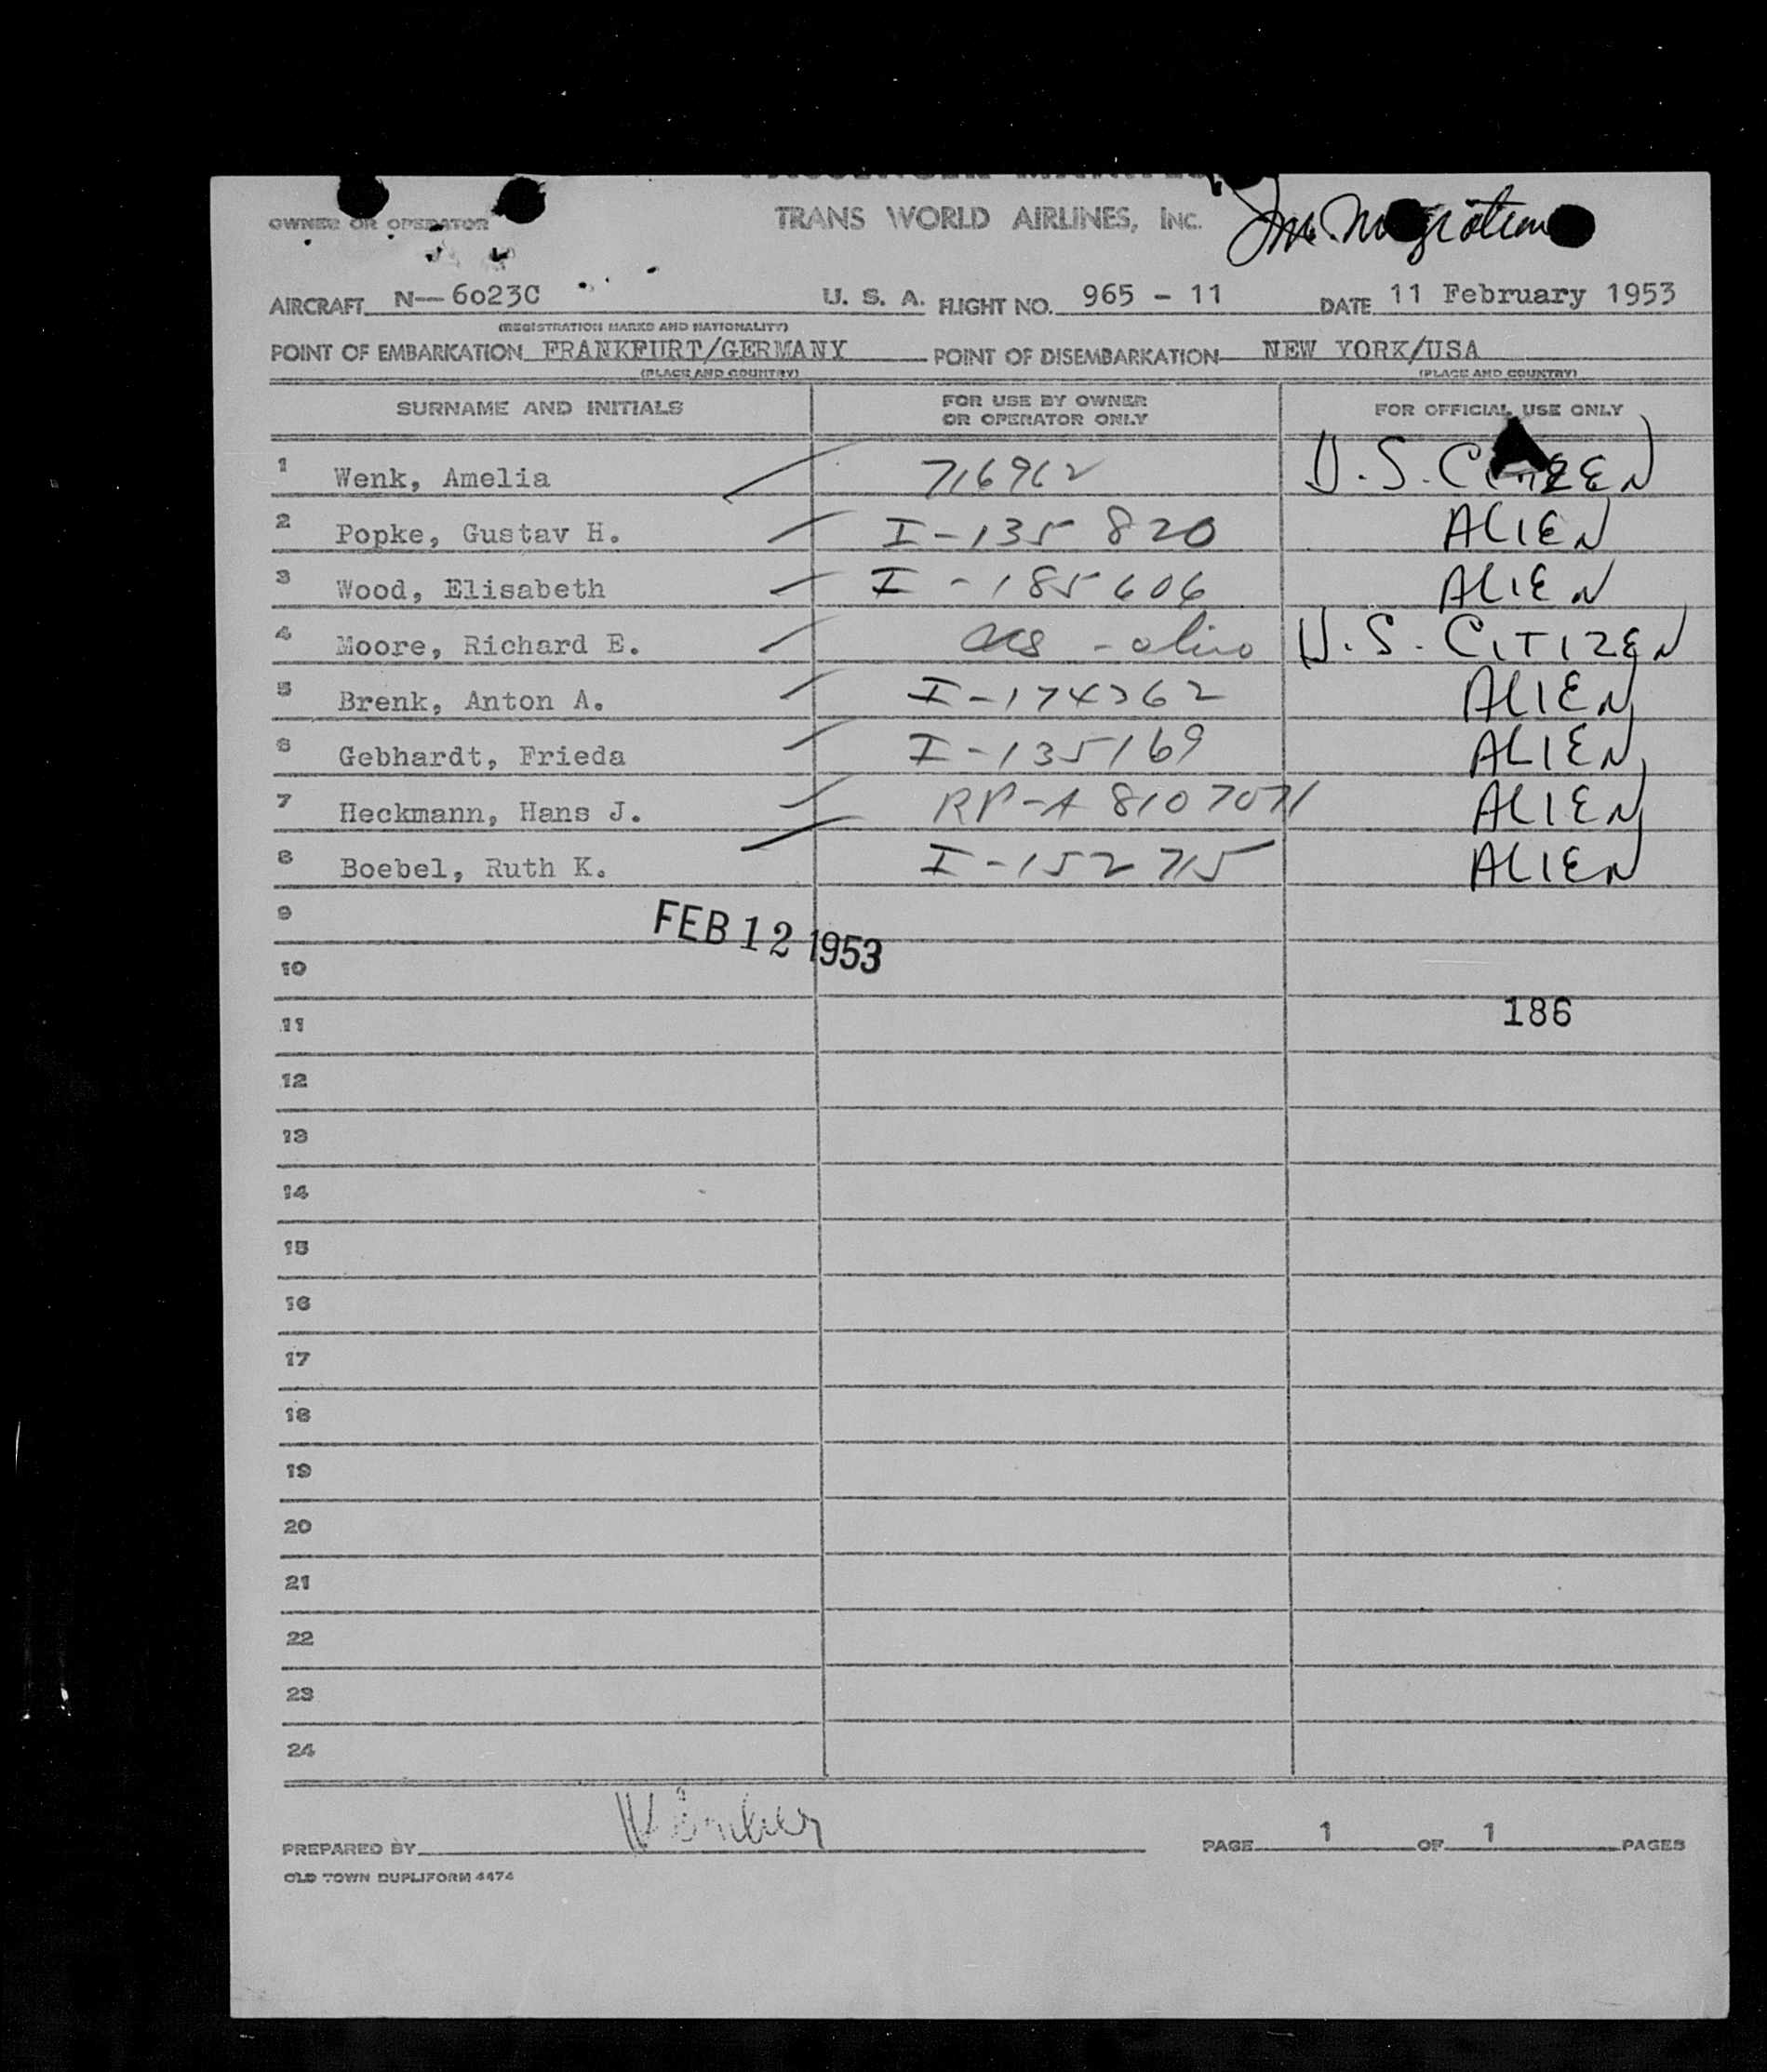 PASSENGER MANIFEST
OWNER OR OPERATOR TRANS WORLD AIRLINES, Inc. Immigration
AIRCRAFT N--6023C U. S. A. FLIGHT NO. 965 - 11 DATE 11 February 1953
(REGISTRATION MARKS AND NATIONALITY)
POINT OF EMBARKATION FRANKFURT/GERMANY POINT OF DISEMBARKATION NEW YORK/USA
(PLACE AND COUNTRY) (PLACE AND COUNTRY)
SURNAME AND INITIALS FOR USE BY OWNER OR OPERATOR ONLY FOR OFFICIAL USE ONLY
1 Wenk, Amelia 716962 U.S. CITIZEN
2 Popke, Gustav H. I-135 820 ALIEN
3 Wood, Elisabeth I-185606 ALIEN
4 Moore, Richard E. U.S. CITIZEN
5 Brenk, Anton A. ALIEN
6 Gebhardt, Frieda I-135169 ALIEN
7 Heckmann, Hans J. RP-A 8107071 ALIEN
8 Boebel, Ruth K. I-152715 ALIEN
9
FEB 12 1953
10
186
11
12
13
14
15
16
17
18
19
20
21
22
23
24
PREPARED BY PAGE 1 OF 1 PAGES
OLD TOWN DUPLIFORM 4474